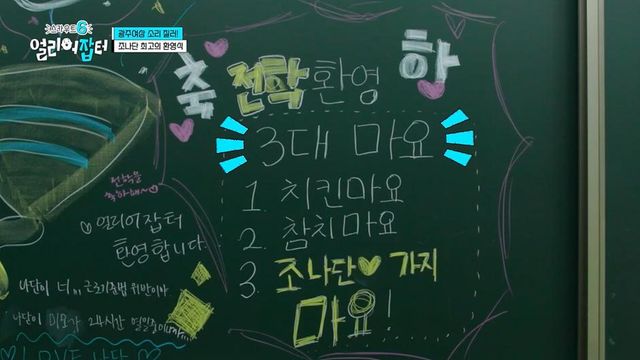 스카우트6
얼리어잡터
광주여상 소리 질러!
조나단 최고의 환영식
축 전학 환영 하
3대 마요
1. 치킨마요
2. 참치마요
3. 조나단♥ 가지
마요!
전학을
축하해~♡
♡얼리어잡터
환영합니다
나단이 너 근로기준법 위반이야
나단이 미모가 24시간 열일중이니까...
I LOVE 나단